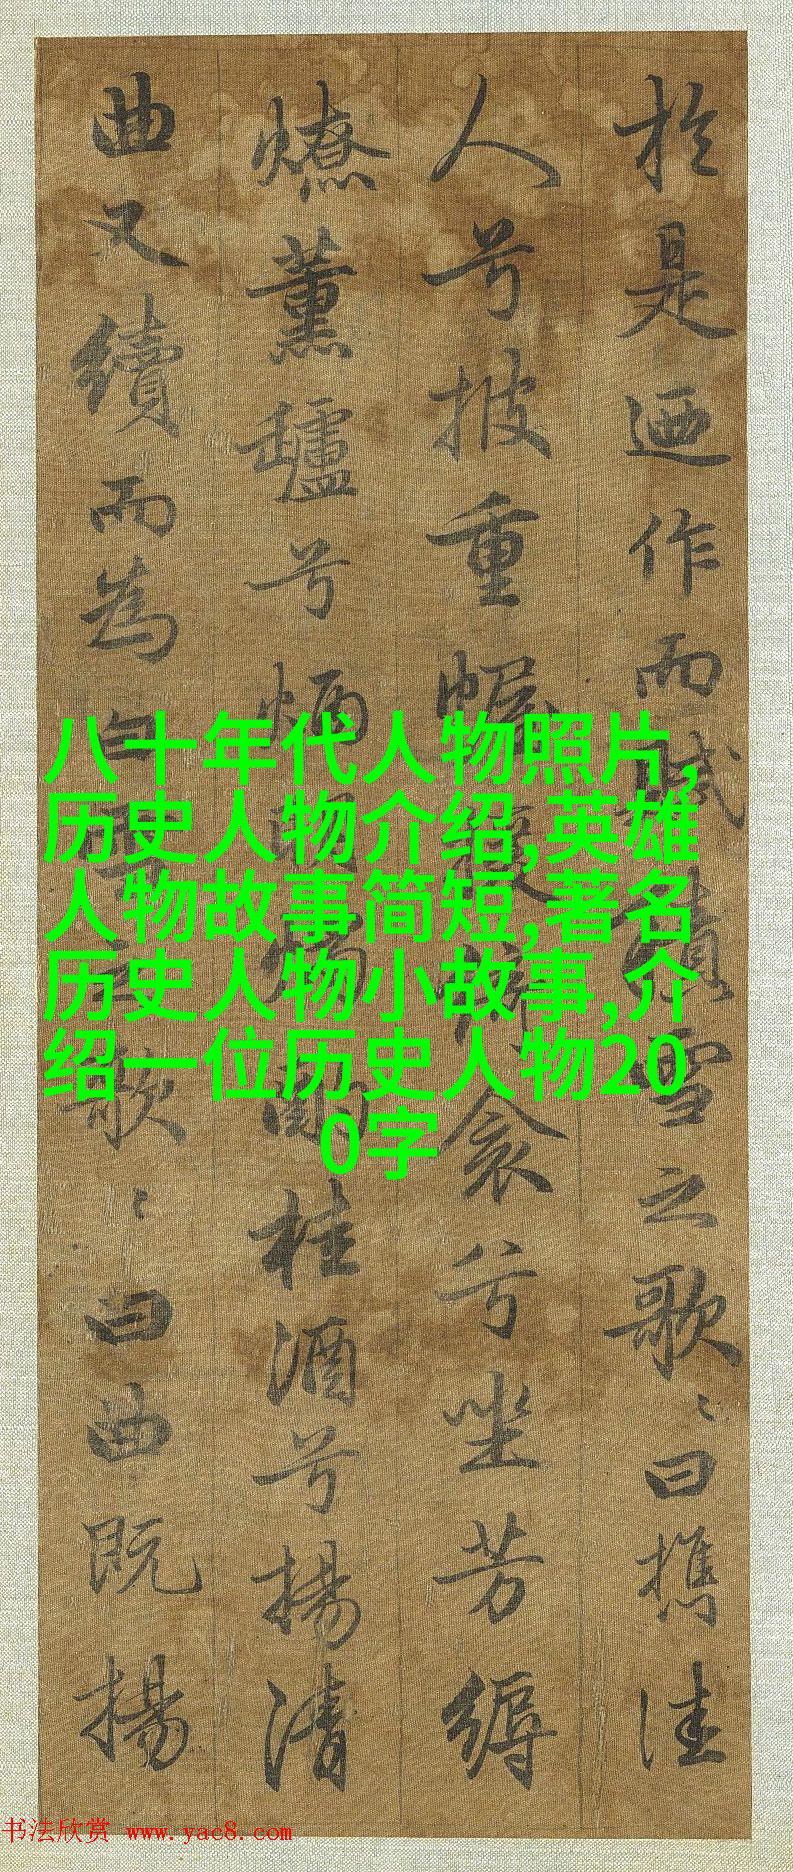 於是迺作而賦積雪之歌〻曰攜佳
人兮披重幄援衾兮坐芳縟
燎薰罏兮炳明酌桂酒兮揚清
曲又續而為白歌〻曰曲既揚
八十年代人物照片,
历史人物介绍,英雄
人物故事简短,著名
历史人物小故事,介
绍一位历史人物20
0字
书法欣赏 www.yac8.com